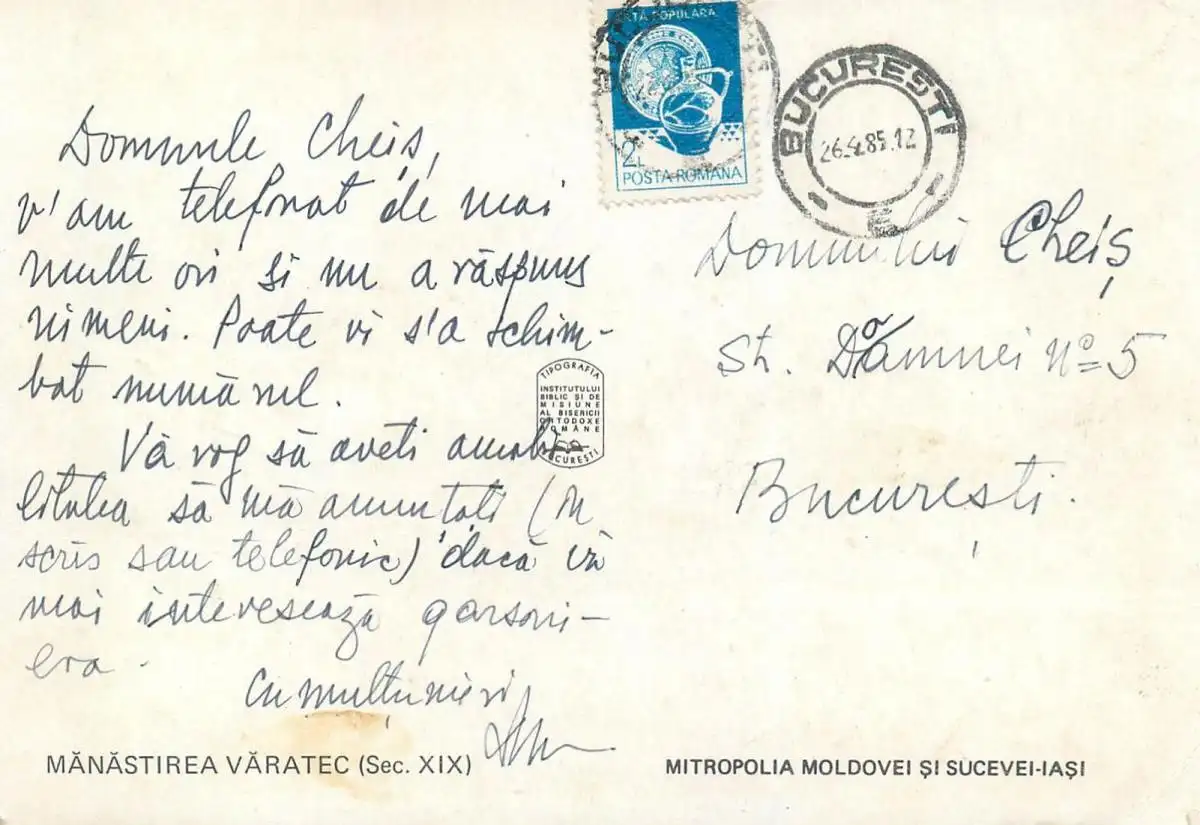 ARTA POPULARA
2L
POSTA ROMANA
BUCURESTI
26.4.85.12
E
Domnule Cheiș,
v'am telefonat de mai
multe ori și nu a răspuns
nimeni. Poate vi s'a schim-
bat numărul.
Vă rog să aveti amabi
litatea să mă anuntati (în
scris sau telefonic) dacă vă
mai interesează garsoni-
era.
Cu mulțumiri
Domnului Cheiș
St. Doamnei No 5
București.
TIPOGRAFIA
INSTITUTULUI
BIBLIC ȘI DE
MISIUNE
AL BISERICII
ORTODOXE
ROMÂNE
BUCUREȘTI
MĂNĂSTIREA VĂRATEC (Sec. XIX)
MITROPOLIA MOLDOVEI ȘI SUCEVEI-IAȘI